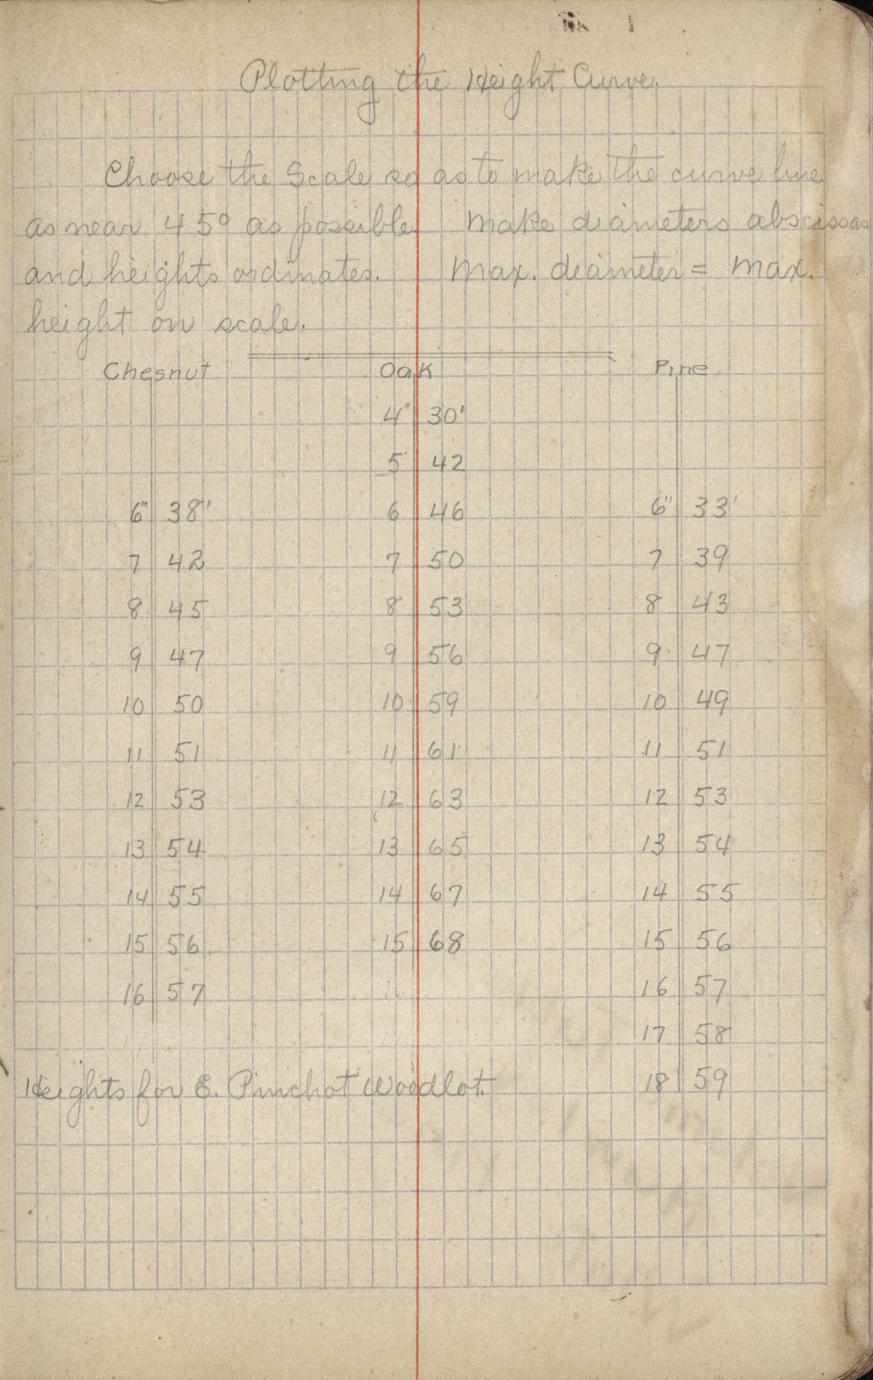 Plotting the Height Curve.
Choose the Scale so as to make the curve line
as near 45° as possible. Make diameters abscissas
and heights ordinates. Max. diameter = Max.
height on scale.
Chesnut Oak Pine
4" 30'
5 42
6" 38' 6 46 6" 33'
7 42 7 50 7 39
8 45 8 53 8 43
9 47 9 56 9 47
10 50 10 59 10 49
11 51 11 61 11 51
12 53 12 63 12 53
13 54 13 65 13 54
14 55 14 67 14 55
15 56 15 68 15 56
16 57 16 16 57
17 58
Heights for E. Pinchot Woodlot. 18 59